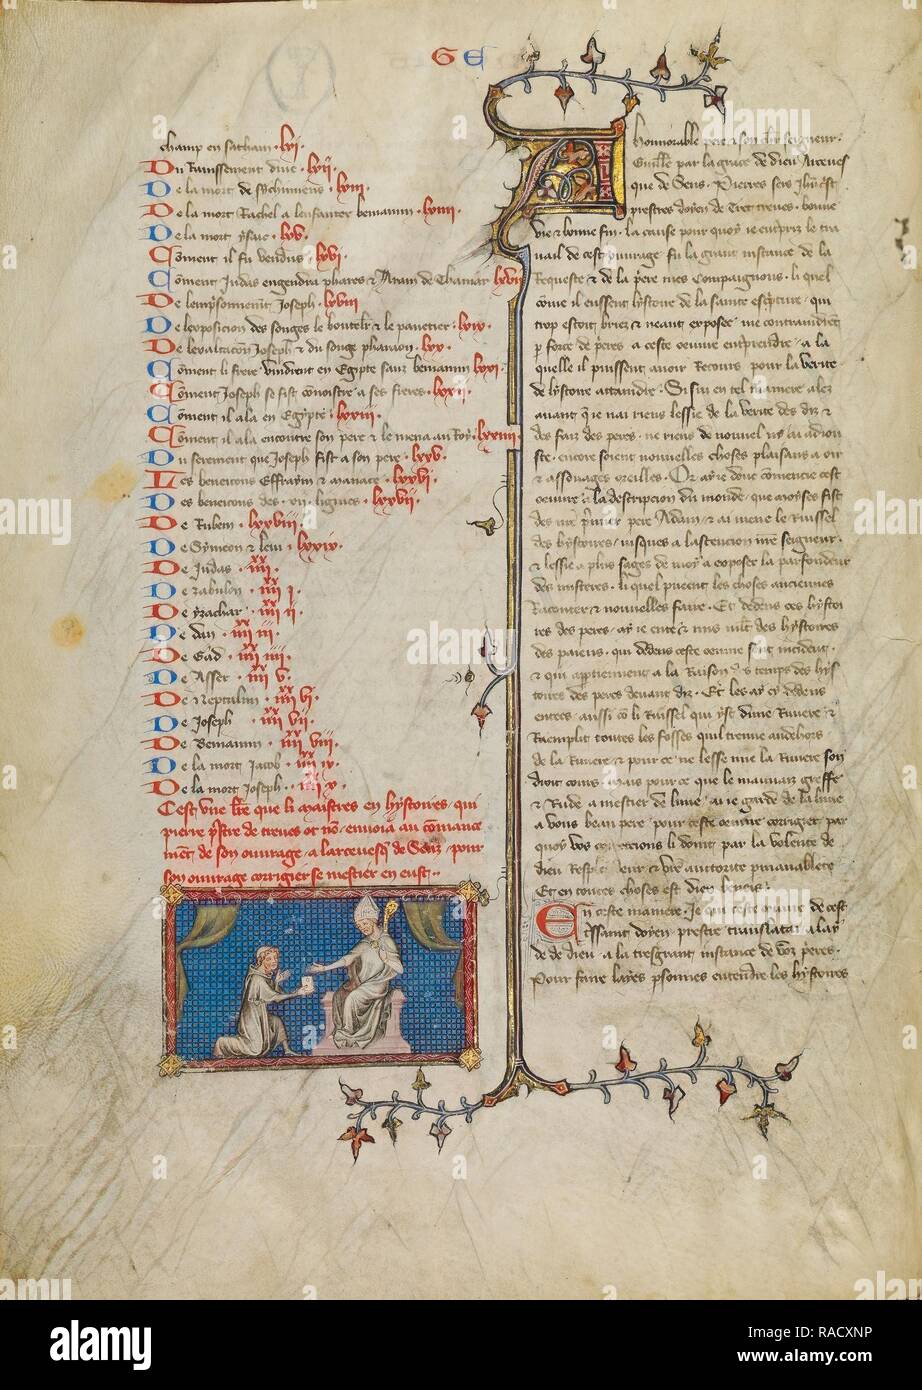 GE
champ en satham · lxi ·
Du Ravissement dine · lxii ·
De la mort de Sychimiens · lxiii ·
De la mort Rachel a lenfanter beniamin · lxiiii ·
De la mort ysaac · lxv ·
Coment il fu vendus · lxvi ·
Coment Judas engendra phares & Aram de Thamar · lxvii
De lemprisonemt Joseph · lxviii
De lexposicion des songes le boutelr & le panetier · lxix ·
De lexaltacon Joseph & du songe pharaon · lxx ·
Coment li frere vindrent en Egypte sanz beniamin lxxi ·
Coment Joseph se fist conoistre a ses freres · lxxii ·
Coment il ala en Egypte · lxxiii ·
Coment il ala encontre son pere & le mena au Roy · lxxiiii ·
Du serement que Joseph fist a son pere · lxxv ·
Les beneicons Effraym & manace · lxxvi ·
Des beneicons des · xii · lignies · lxxvii ·
De Ruben · lxxviii ·
De Symeon & levi · lxxix ·
De Judas · iiii xx ·
De zabulon · iiii xx i ·
De yzachar · iiii xx ii ·
De dan · iiii xx iii ·
De Gad · iiii xx iiii ·
De Asser · iiii xx v ·
De Neptalim · iiii xx vi ·
De Joseph · iiii xx vii ·
De Beniamin · iiii xx viii ·
De la mort Jacob · iiii xx ix ·
De la mort Joseph · iiii xx x ·
Cest une lre que li maistres en hystoires, qui
pierre prestre de treves ot non, envoia au comance
ment de son ouvrage, a larcevesq de Sanz, pour
son ouvrage corrigier se mestier en eust ··
A honnorable pere & son chier seigneur ·
Guille par la grace de dieu Arceves
que de Sens · Pierres sers Jhu Crist
prestres doyen de Treves · bonne
vie & bonne fin · la cause pour quoy ie empriz le tra
vail de cest ouvrage fu la grant instance de la
Requeste & de la pere mes Compaignons · li quel
come il eussent lystoire de la sainte escpture · qui
trop estoit briez & neant exposee · me contraindrent
p force de peres a ceste oeuvre emprendre · a la
quelle il puissent avoir Recours pour la verite
de lystoire attaindre · Si sui en tel maniere alez
avant que ie nai riens lessie de la verite des diz &
des faiz des peres · ne riens de nouvel ni ai adiou
ste · encore soient nouvelles choses plaisans a oir
& assouages oreilles · Or ay ie donc comencie cest
oeuvre a la descripcion du monde · que moyses fist
des nre premier pere Adam · & ai mene le Ruissel
des hystoires · iusques a lascencion nre seigneur ·
& lessie a plus sages de moy a exposer la parfondeur
des misteres · li quel pueent les choses anciennes
Raconter & nouvelles faire · Et dedens ces hystoi
res des peres · ay ie ente & mis mlt des hystoires
des paiens · qui dedens ceste oeuvre sont incident ·
& qui aptienent a la Raison & temps des hys
toires des peres devant diz · Et les ay cy dedens
entees · aussi co li Ruissel qui yst dune Riviere &
Raemplit toutes les fosses quil treuve andehors
de la Riviere & pour ce ne lesse mie la Riviere son
droit cours · mais pour ce que le mauvaiz greffe
& Rude a mestier de lime · ai ie garde de la lime
a vous beau pere pour ceste oeuvre corrigier par
quoy vos correcions li doint par la volente de
dieu Resplendeur & vre auctorite pmanablete
Et en toutes choses est dieu beneis ·
En ceste maniere · Je qui ceste oeuvre de cest
tissant doyen prestre translatai a lay
de de dieu · a la tresgrant instance de voz peres ·
Pour faire layes psonnes entendre les hystoires
alamy
Image ID: RACXNP
www.alamy.com